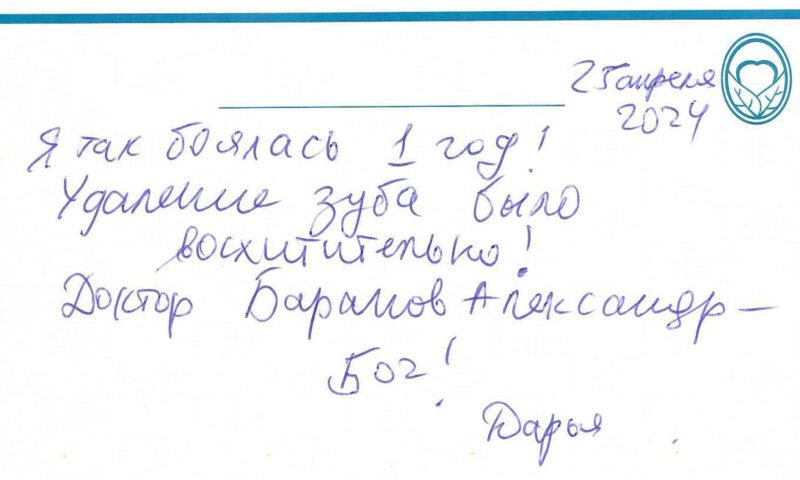 25 апреля
2024
Я так боялась 1 год!
Удаление зуба было
восхитительно!
Доктор Баранов Александр –
Бог!
Дарья